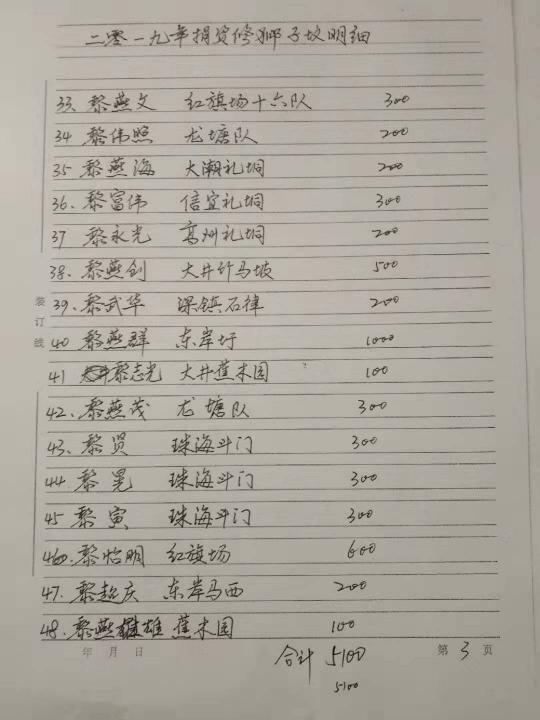 二零一九年捐资修狮子坟明细
33、黎燕文 红旗场十六队 300
34 黎伟照 龙塘队 200
35 黎燕海 大潮礼垌 200
36、黎富伟 信宜礼垌 300
37 黎永光 高州礼垌 200
38、黎燕创 大井竹马坡 500
39、黎武华 深镇石律 200
40 黎燕群 东岸圩 1000
41 黎志光 大井蕉木园 100
42、黎燕茂 龙塘队 300
43、黎贤 珠海斗门 300
44 黎晃 珠海斗门 300
45 黎寅 珠海斗门 300
46、黎怡明 红旗场 600
47、黎超庆 东岸马西 200
48、黎燕雄 蕉木园 100
装订线
年 月 日 第 3 页
合计 5100
5100